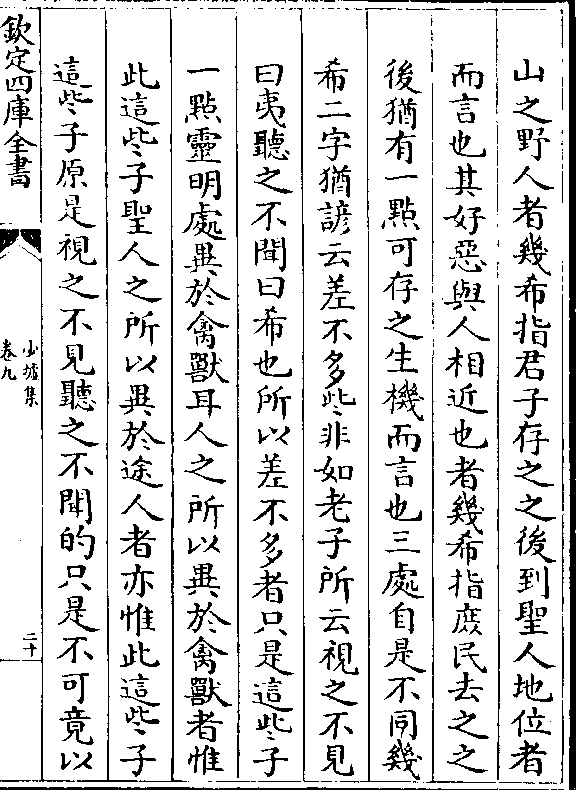 山之野人者幾希指君子存之之後到聖人地位者
而言也其好惡與人相近也者幾希指庶民去之之
後猶有一點可存之生機而言也三處自是不同幾
希二字猶諺云差不多些非如老子所云視之不見
曰夷聽之不聞曰希也所以差不多者只是這些子
一點靈明處異於禽獸耳人之所以異於禽獸者惟
此這些子聖人之所以異於途人者亦惟此這些子
這些子原是視之不見聽之不聞的只是不可竟以
欽定四庫全書
少墟集
卷九
二十